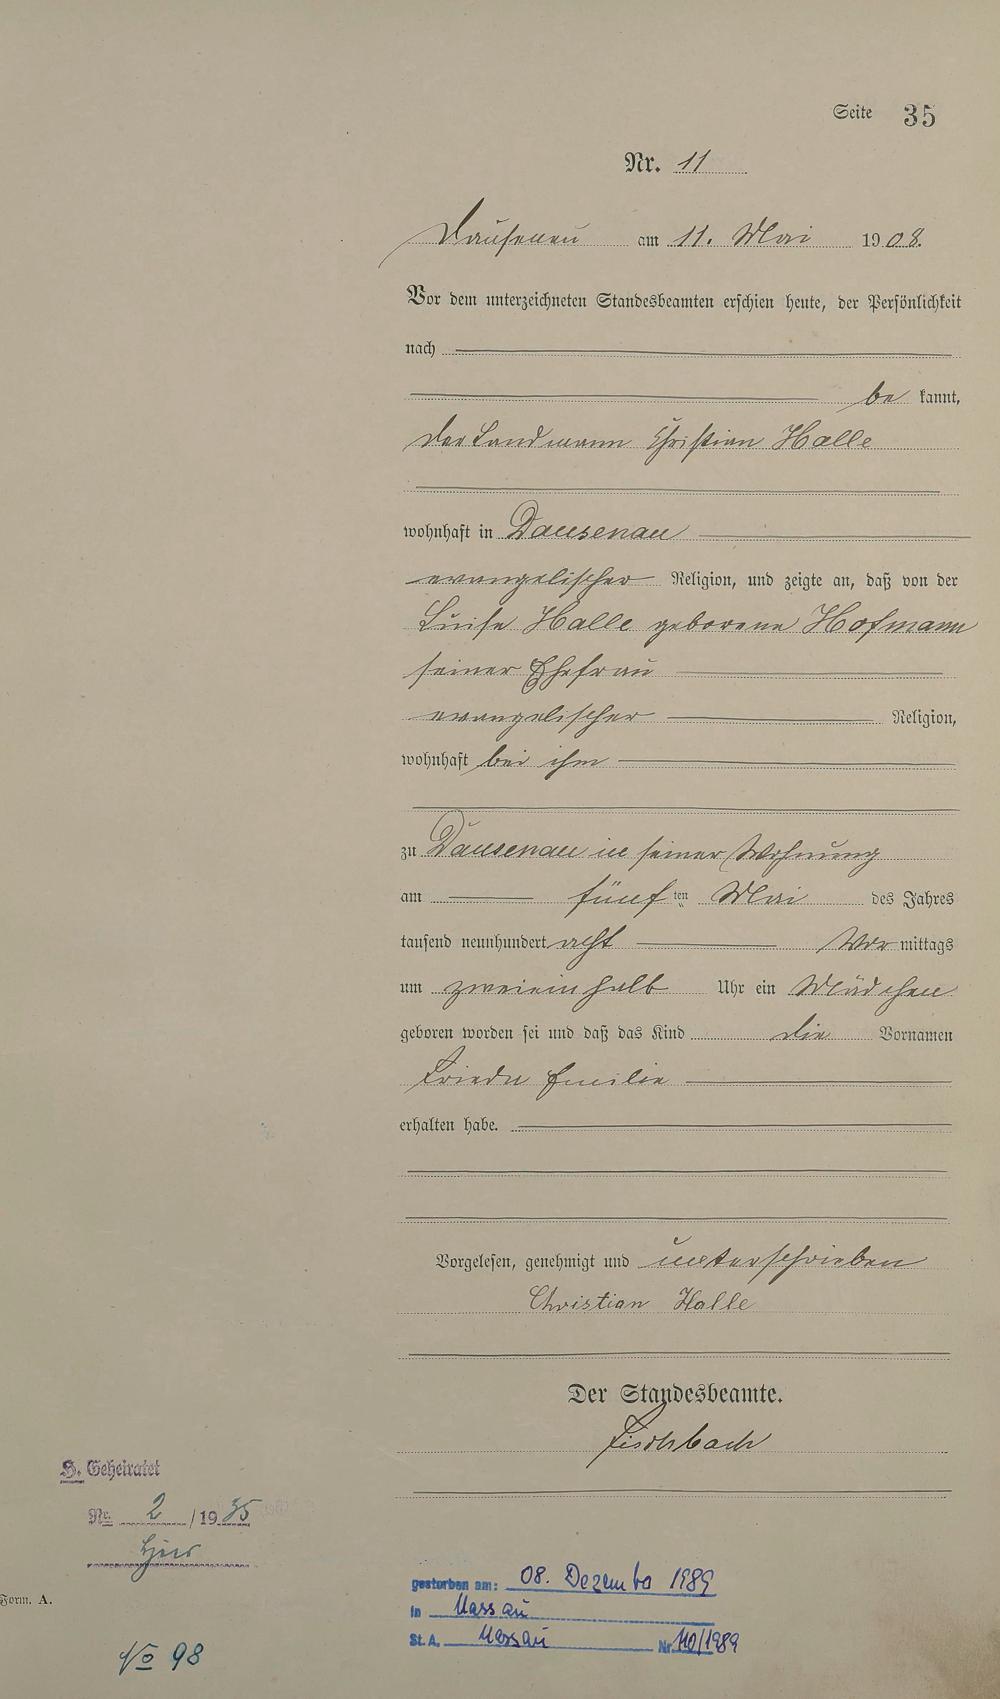 Seite 35
Nr. 11
Dausenau am 11. Mai 1908.
Vor dem unterzeichneten Standesbeamten erschien heute, der Persönlichkeit
nach
be kannt,
der Landmann Christian Halle
wohnhaft in Dausenau
evangelischer Religion, und zeigte an, daß von der
Luise Halle geborene Hofmann
seiner Ehefrau
evangelischer Religion,
wohnhaft bei ihm
zu Dausenau in seiner Wohnung
am fünften Mai des Jahres
tausend neunhundert acht Vormittags
um zweieinhalb Uhr ein Mädchen
geboren worden sei und daß das Kind die Vornamen
Frieda Emilie
erhalten habe.
Vorgelesen, genehmigt und unterschrieben
Christian Halle
Der Standesbeamte.
Fischbach
H. Geheiratet
Nr. 2 / 1935
hier
Form. A.
gestorben am: 08. Dezember 1989
in Nassau
St. A. Nassau Nr. 110/1989
No 98